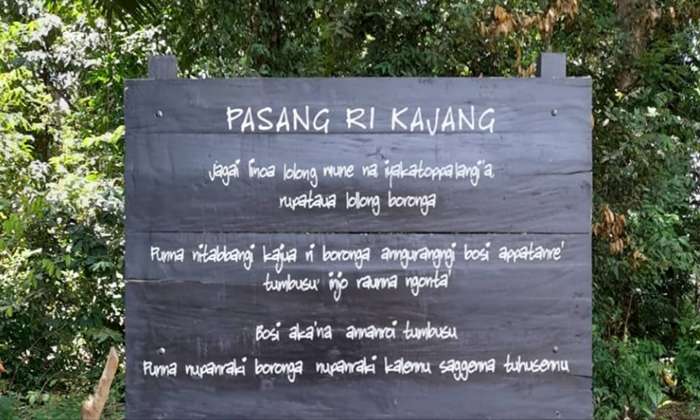 PASANG RI KAJANG
Jagai linoa lolong mune na iyakatoppalangi'a,
rupataua lollong boronga
Punna nitabbangi kajua ri boronga annguranngngi bosi appatanre'
tumbusu injo raunna ngonta'
Bosi aka'na annanroi tumbusu
Punna nupanraki boronga nupanraki kalennu saggenna tuhusennu